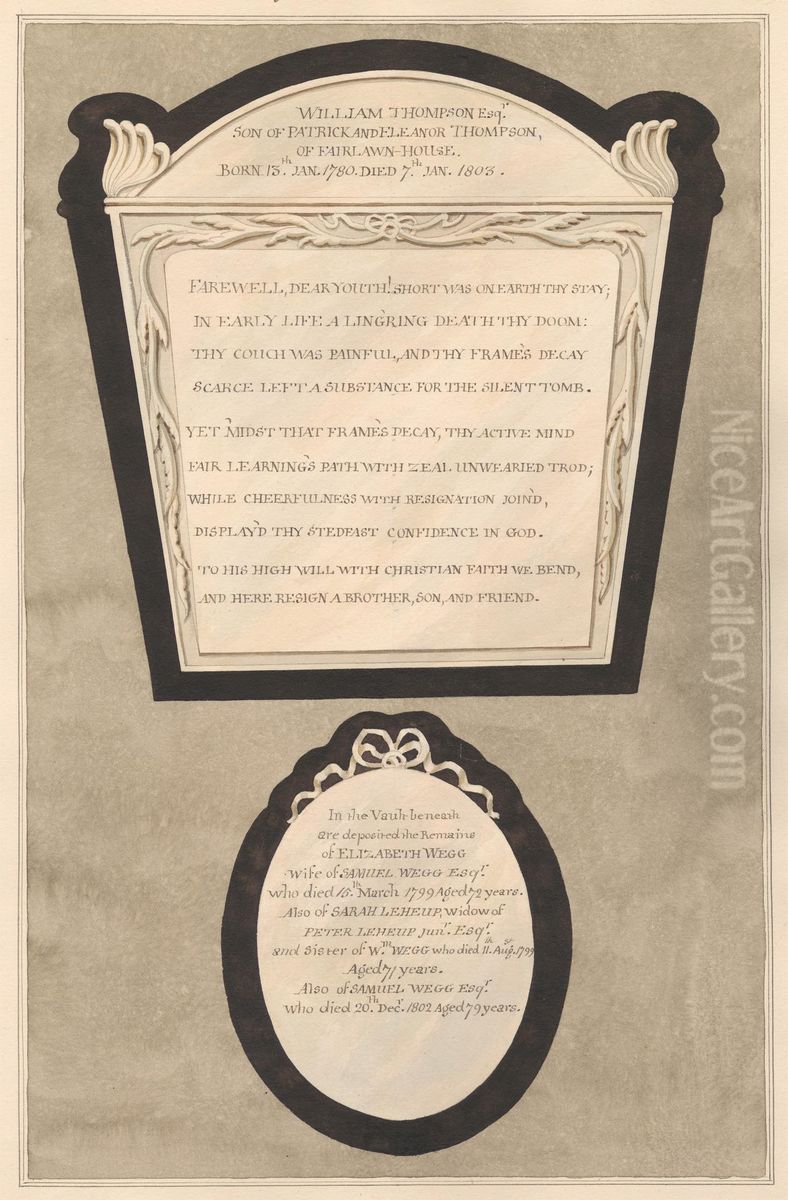 WILLIAM THOMPSON Esqr.
SON OF PATRICK AND ELEANOR THOMPSON,
OF FAIRLAWN-HOUSE.
BORN 13th. JAN. 1780. DIED 7th. JAN. 1803.
FAREWELL, DEAR YOUTH! SHORT WAS ON EARTH THY STAY;
IN EARLY LIFE A LING'RING DEATH THY DOOM:
THY COUCH WAS PAINFUL, AND THY FRAME'S DECAY
SCARCE LEFT A SUBSTANCE FOR THE SILENT TOMB.
YET 'MIDST THAT FRAME'S DECAY, THY ACTIVE MIND
FAIR LEARNING'S PATH WITH ZEAL UNWEARIED TROD;
WHILE CHEERFULNESS WITH RESIGNATION JOIN'D,
DISPLAY'D THY STEDFAST CONFIDENCE IN GOD.
TO HIS HIGH WILL WITH CHRISTIAN FAITH WE BEND,
AND HERE RESIGN A BROTHER, SON, AND FRIEND.
In the Vault beneath
are deposited the Remains
of ELIZABETH WEGG
Wife of SAMUEL WEGG Esqr.
who died 15th. March 1799 Aged 72 years.
Also of SARAH LEHEUP, widow of
PETER LEHEUP junr. Esqr.
and Sister of Wm. WEGG who died 11th. Augst. 1799
Aged 71 years.
Also of SAMUEL WEGG Esqr.
who died 20Th. Decr. 1802 Aged 79 years.
NiceArtGallery.com